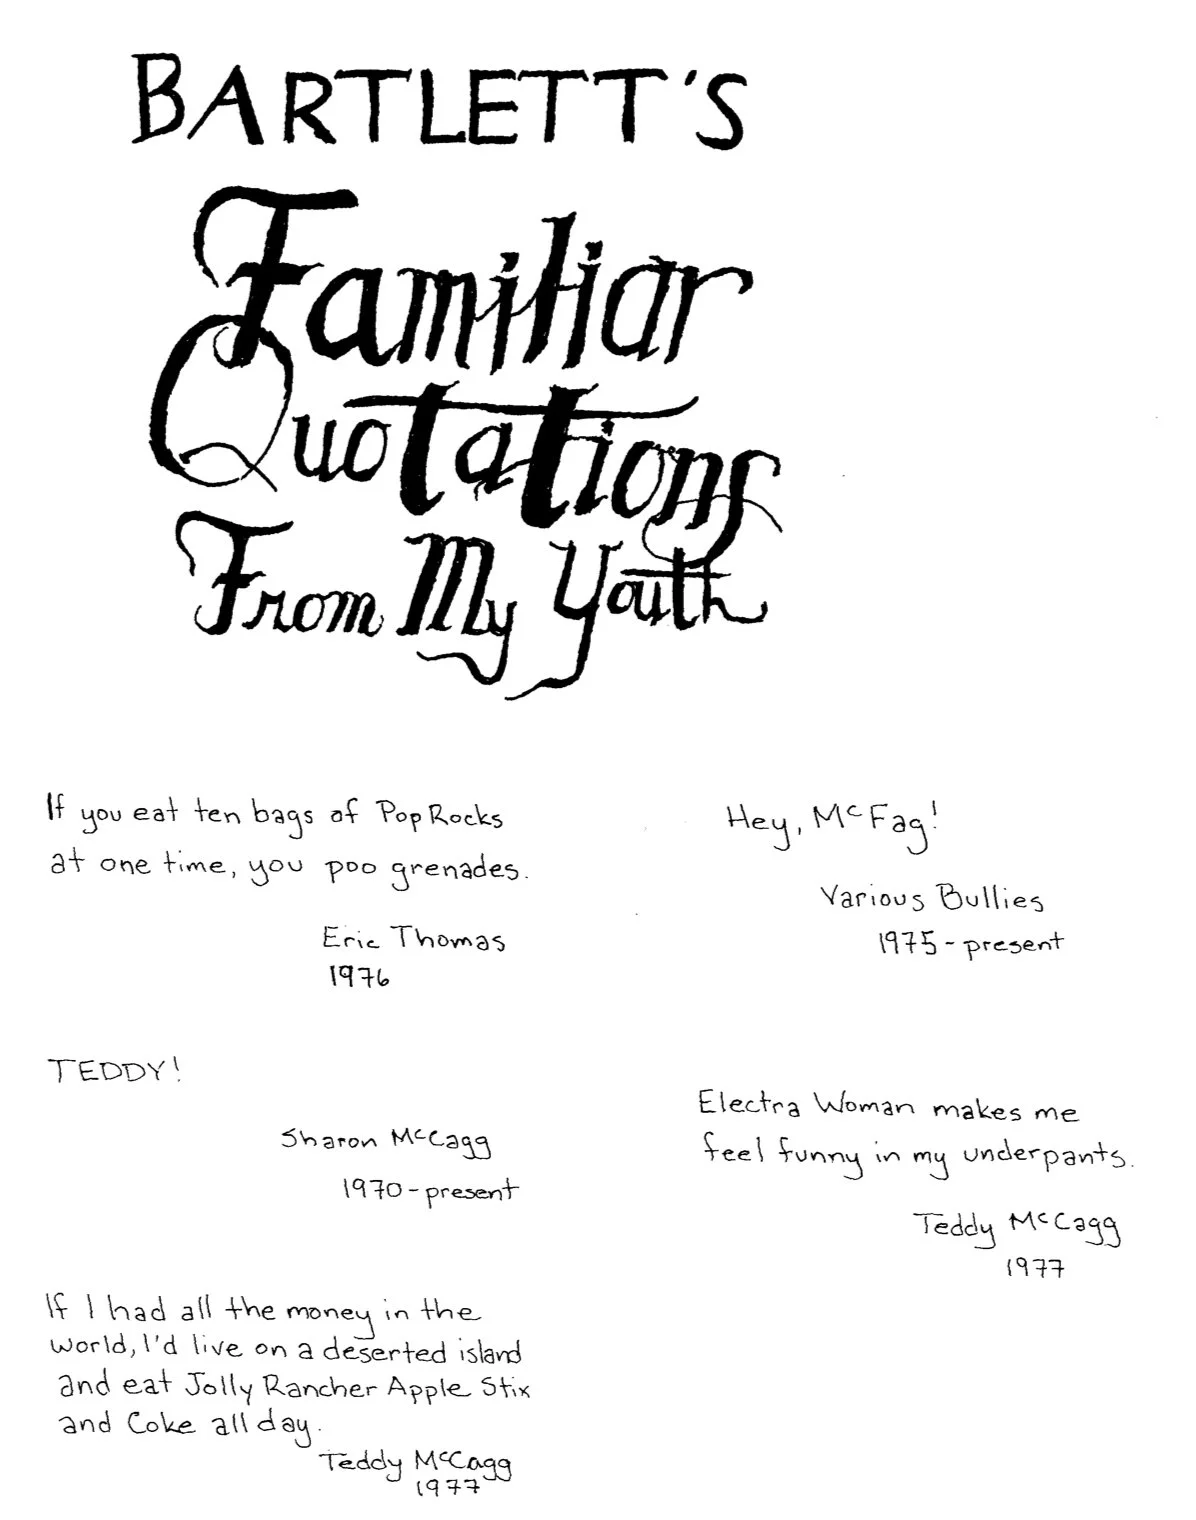 BARTLETT'S
Familiar
Quotations
From My Youth
If you eat ten bags of Pop Rocks
at one time, you poo grenades.
Eric Thomas
1976
TEDDY!
Sharon McCagg
1970-present
If I had all the money in the
world, I'd live on a deserted island
and eat Jolly Rancher Apple Stix
and Coke all day.
Teddy McCagg
1977
Hey, McFag!
Various Bullies
1975-present
Electra Woman makes me
feel funny in my underpants.
Teddy McCagg
1977